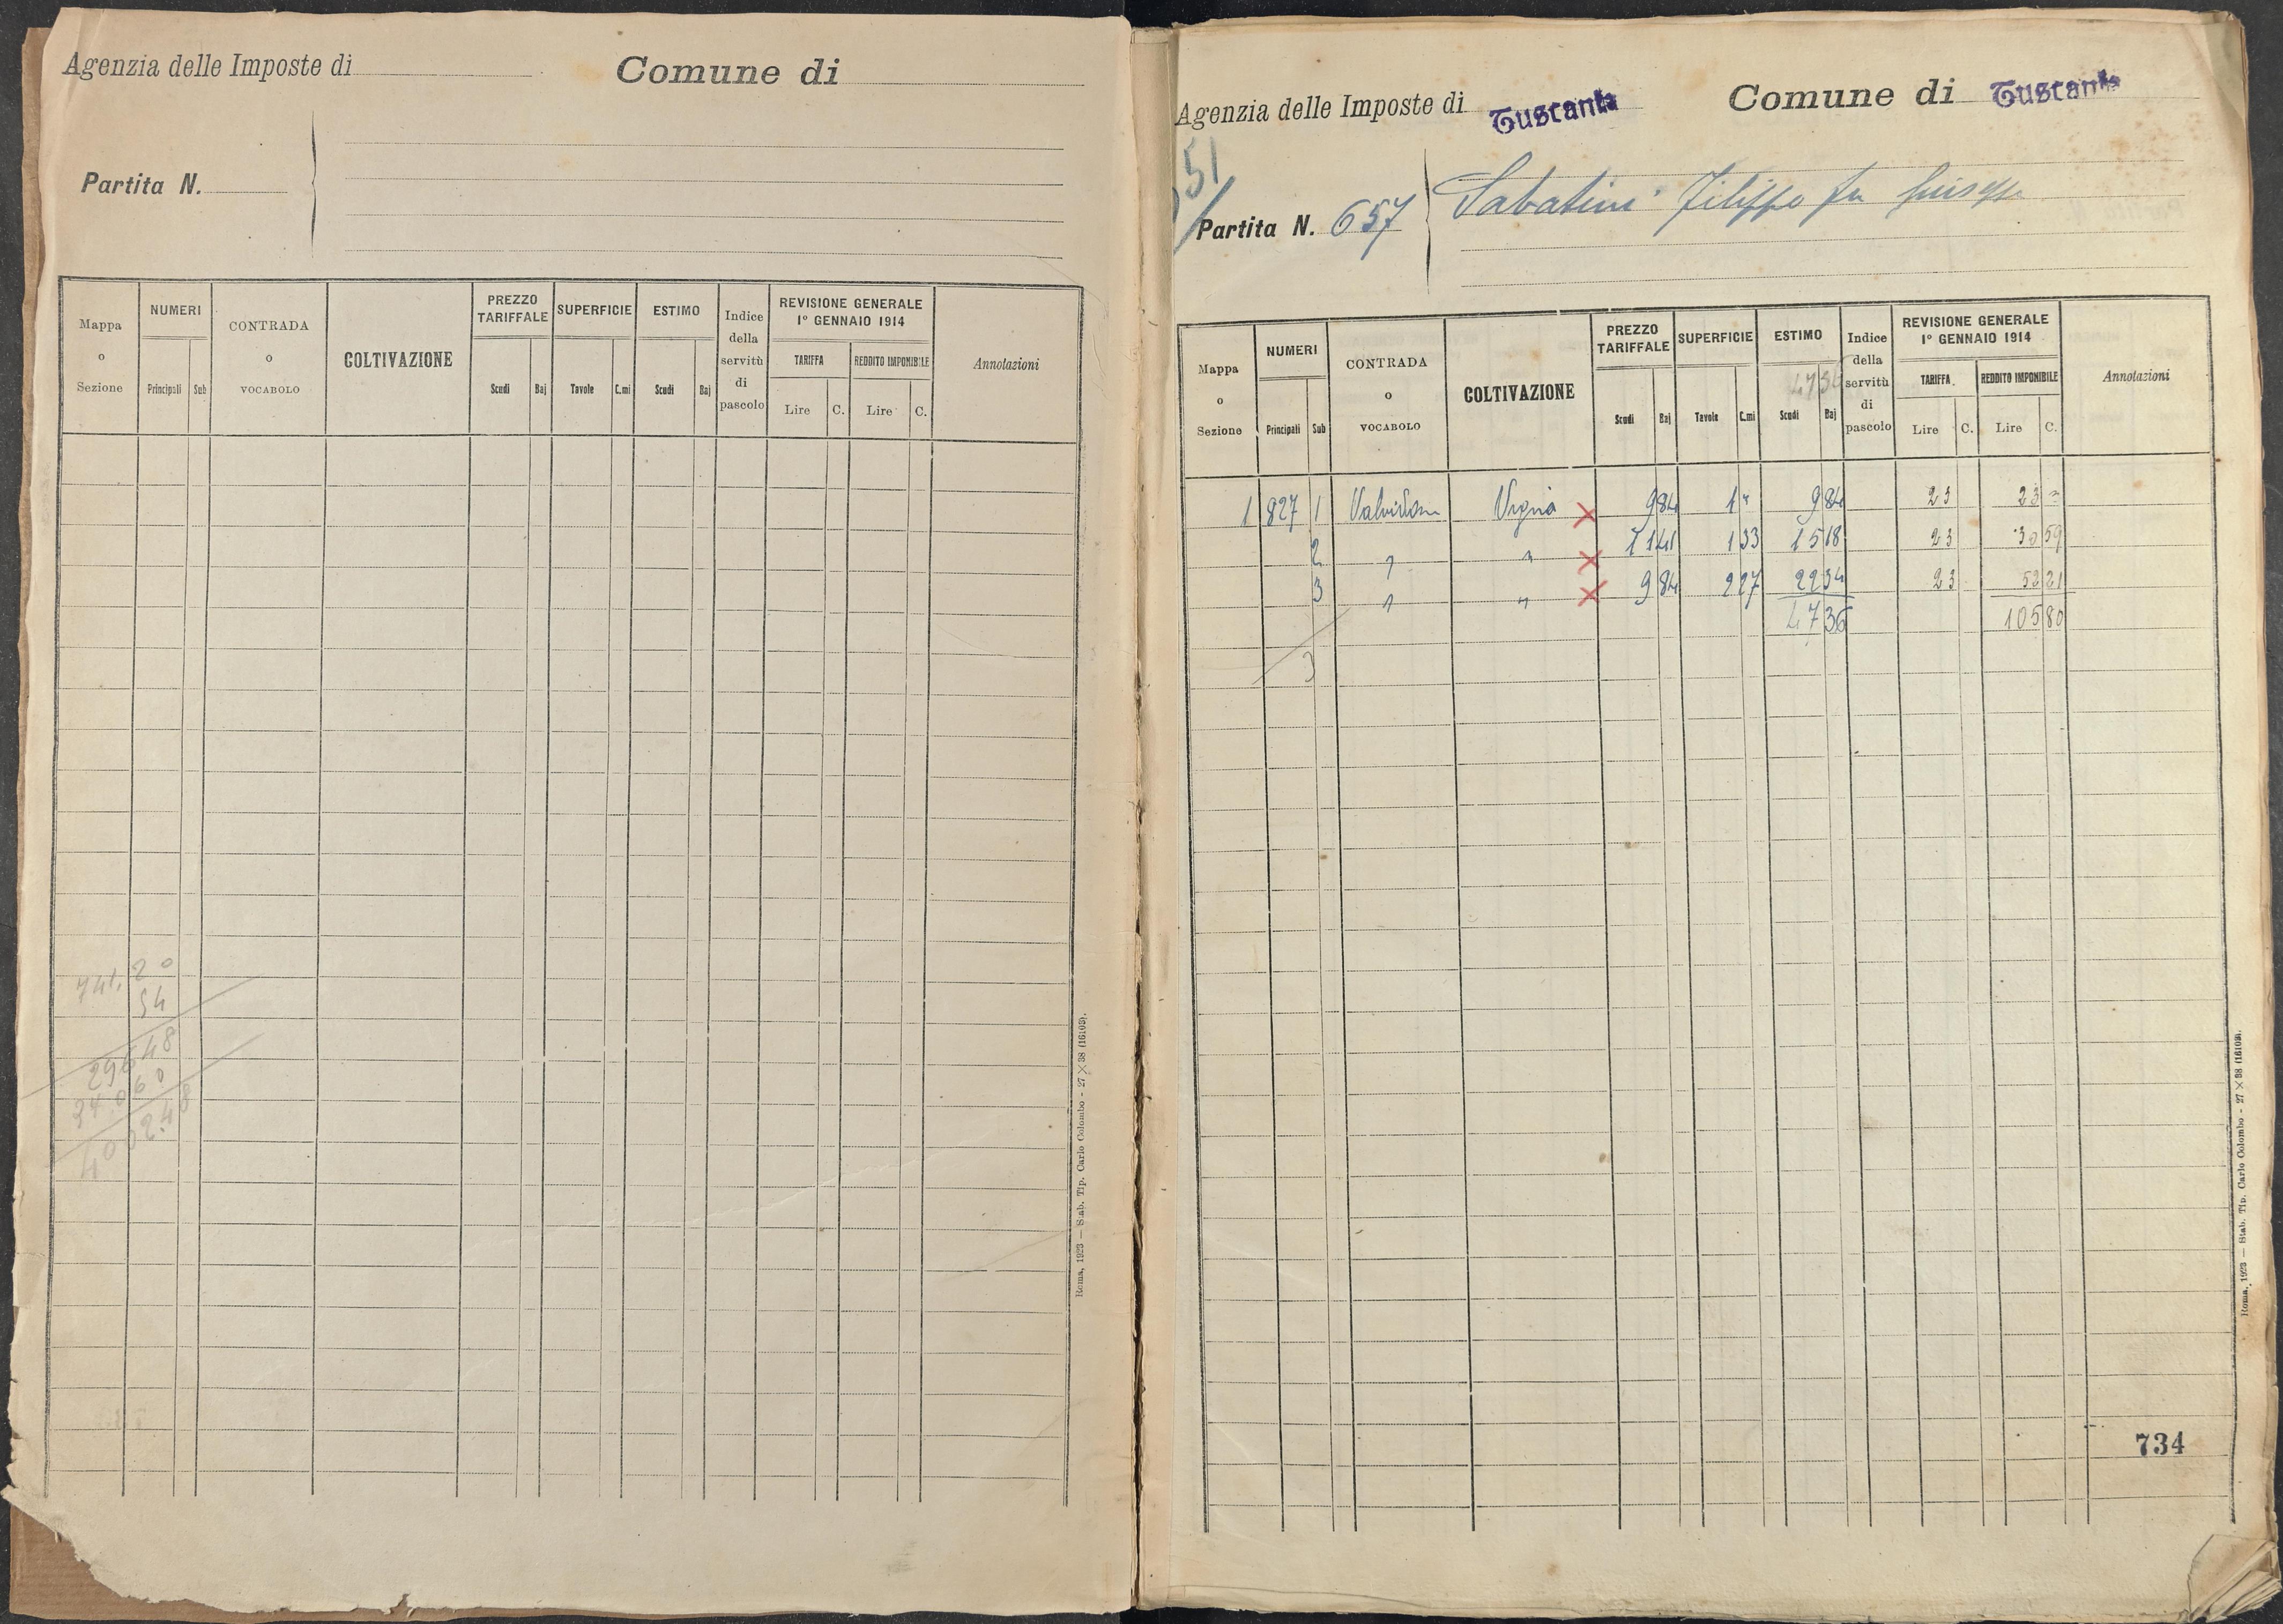 Agenzia delle Imposte di
Comune di
Partita N.
Mappa o Sezione
NUMERI
Principali
Sub
CONTRADA o VOCABOLO
COLTIVAZIONE
PREZZO TARIFFALE
Scudi
Baj
SUPERFICIE
Tavole
C.mi
ESTIMO
Scudi
Baj
Indice della servitù di pascolo
REVISIONE GENERALE
1° GENNAIO 1914
TARIFFA
Lire
C.
REDDITO IMPONIBILE
Lire
C.
Annotazioni
741.20
54
29648
4002.48
Roma, 1923 — Stab. Tip. Carlo Colombo - 27 × 38 (16103).
Agenzia delle Imposte di Tuscania
Comune di Tuscania
51
Partita N. 657
Sabatini Filippo fu Giuseppe
Mappa o Sezione
NUMERI
Principali
Sub
CONTRADA o VOCABOLO
COLTIVAZIONE
PREZZO TARIFFALE
Scudi
Baj
SUPERFICIE
Tavole
C.mi
ESTIMO
4736
Scudi
Baj
Indice della servitù di pascolo
REVISIONE GENERALE
1° GENNAIO 1914
TARIFFA
Lire
C.
REDDITO IMPONIBILE
Lire
C.
Annotazioni
1 827 1 Vigna × 9 84 1 " 9 84 23 23 "
2 " " × 11 41 1 33 15 18 23 30 59
3 " " × 9 84 2 27 22 34 23 52 21
47 36 105 80
3
734
Roma, 1923 — Stab. Tip. Carlo Colombo - 27 × 38 (16103).